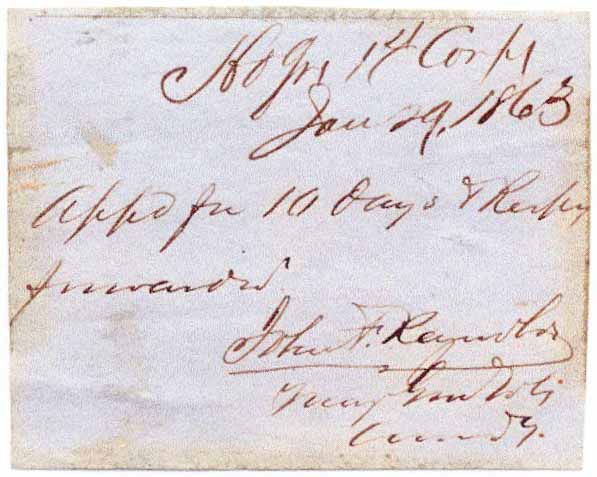 Hd Qrs 1st Corps
Jan 29, 1863
Appd for 10 days & Respy
forwarded
John F. Reynolds
Maj Genl Vols
Comdg.